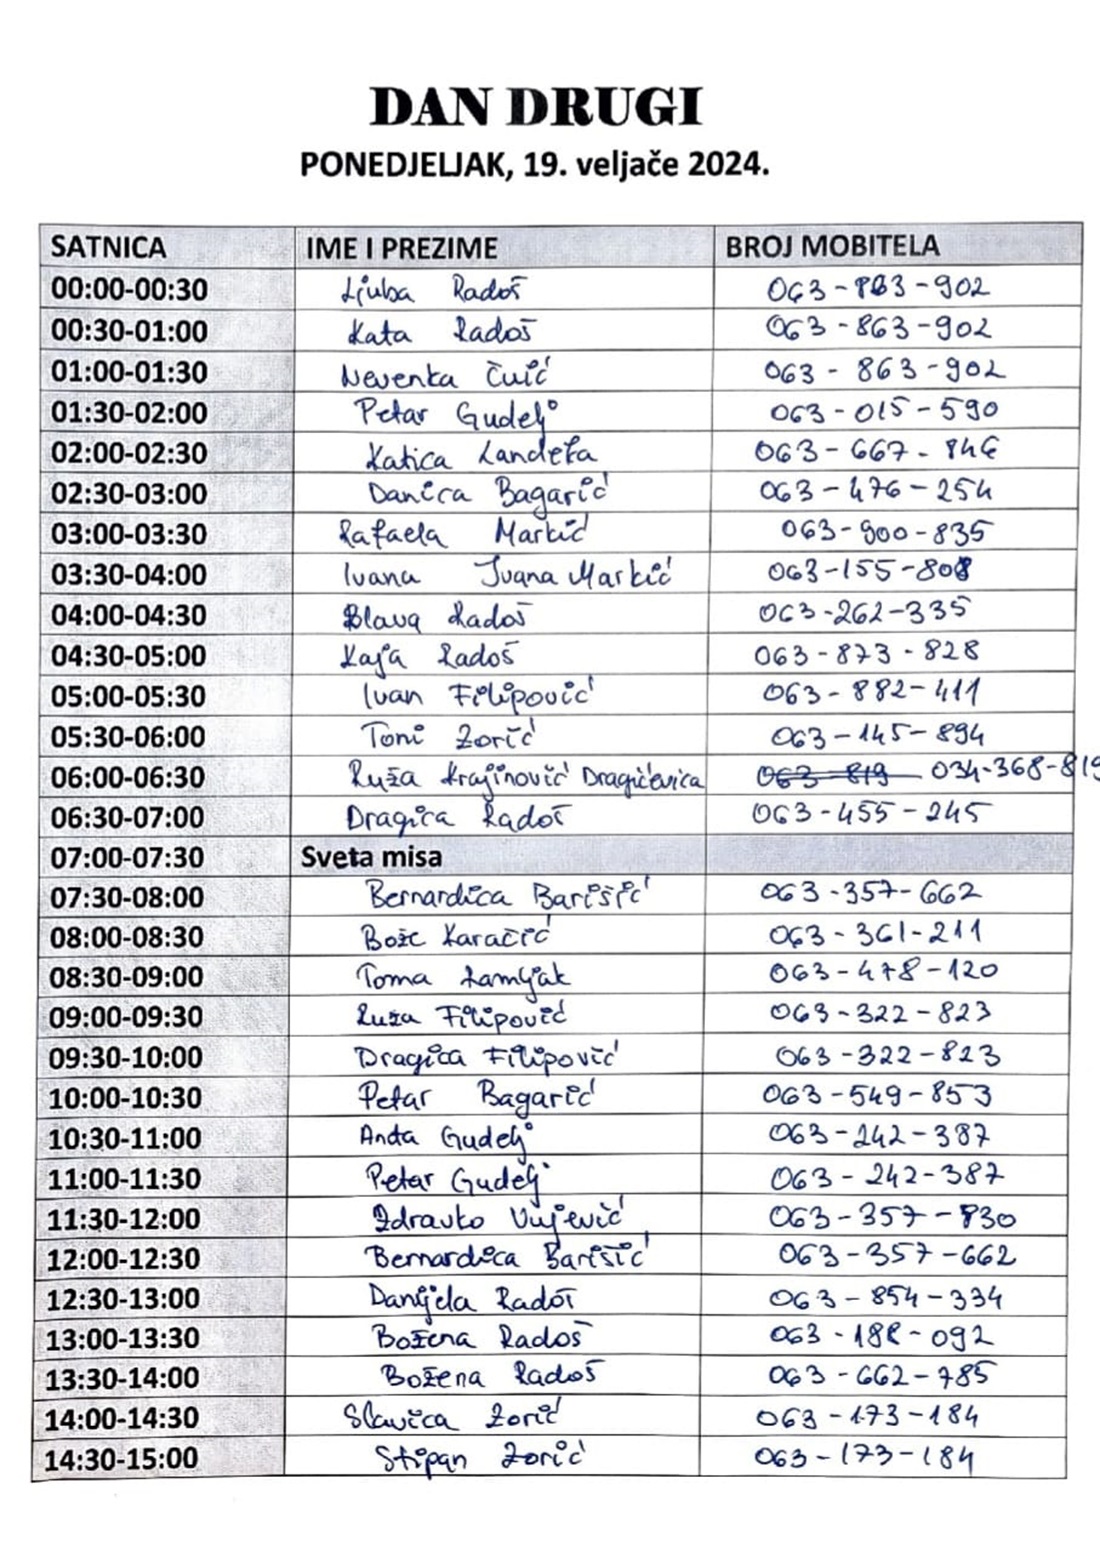 DAN DRUGI
PONEDJELJAK, 19. veljače 2024.
SATNICA IME I PREZIME BROJ MOBITELA
00:00-00:30 Ljuba Radoš 063-863-902
00:30-01:00 Kata Radoš 063-863-902
01:00-01:30 Nevenka Čuić 063-863-902
01:30-02:00 Petar Gudelj 063-015-590
02:00-02:30 Katica Landeka 063-667-846
02:30-03:00 Danica Bagarić 063-476-254
03:00-03:30 Rafaela Markić 063-900-835
03:30-04:00 Ivana Ivana Markić 063-155-808
04:00-04:30 Radoš 063-262-335
04:30-05:00 Kaja Radoš 063-873-828
05:00-05:30 Ivan Filipović 063-882-411
05:30-06:00 Toni Zorić 063-145-894
06:00-06:30 Ruža Krajinović Dragičevica 063-819 034-368-819
06:30-07:00 Dragica Radoš 063-455-245
07:00-07:30 Sveta misa
07:30-08:00 Bernardica Barišić 063-357-662
08:00-08:30 Bože Karačić 063-361-211
08:30-09:00 Toma Ramljak 063-478-120
09:00-09:30 Ruža Filipović 063-322-823
09:30-10:00 Dragica Filipović 063-322-823
10:00-10:30 Petar Bagarić 063-549-853
10:30-11:00 Anđa Gudelj 063-242-387
11:00-11:30 Petar Gudelj 063-242-387
11:30-12:00 Zdravko Vujević 063-357-830
12:00-12:30 Bernardica Barišić 063-357-662
12:30-13:00 Danijela Radoš 063-854-334
13:00-13:30 Božena Radoš 063-188-092
13:30-14:00 Božena Radoš 063-662-785
14:00-14:30 Slavica Zorić 063-173-184
14:30-15:00 Stipan Zorić 063-173-184